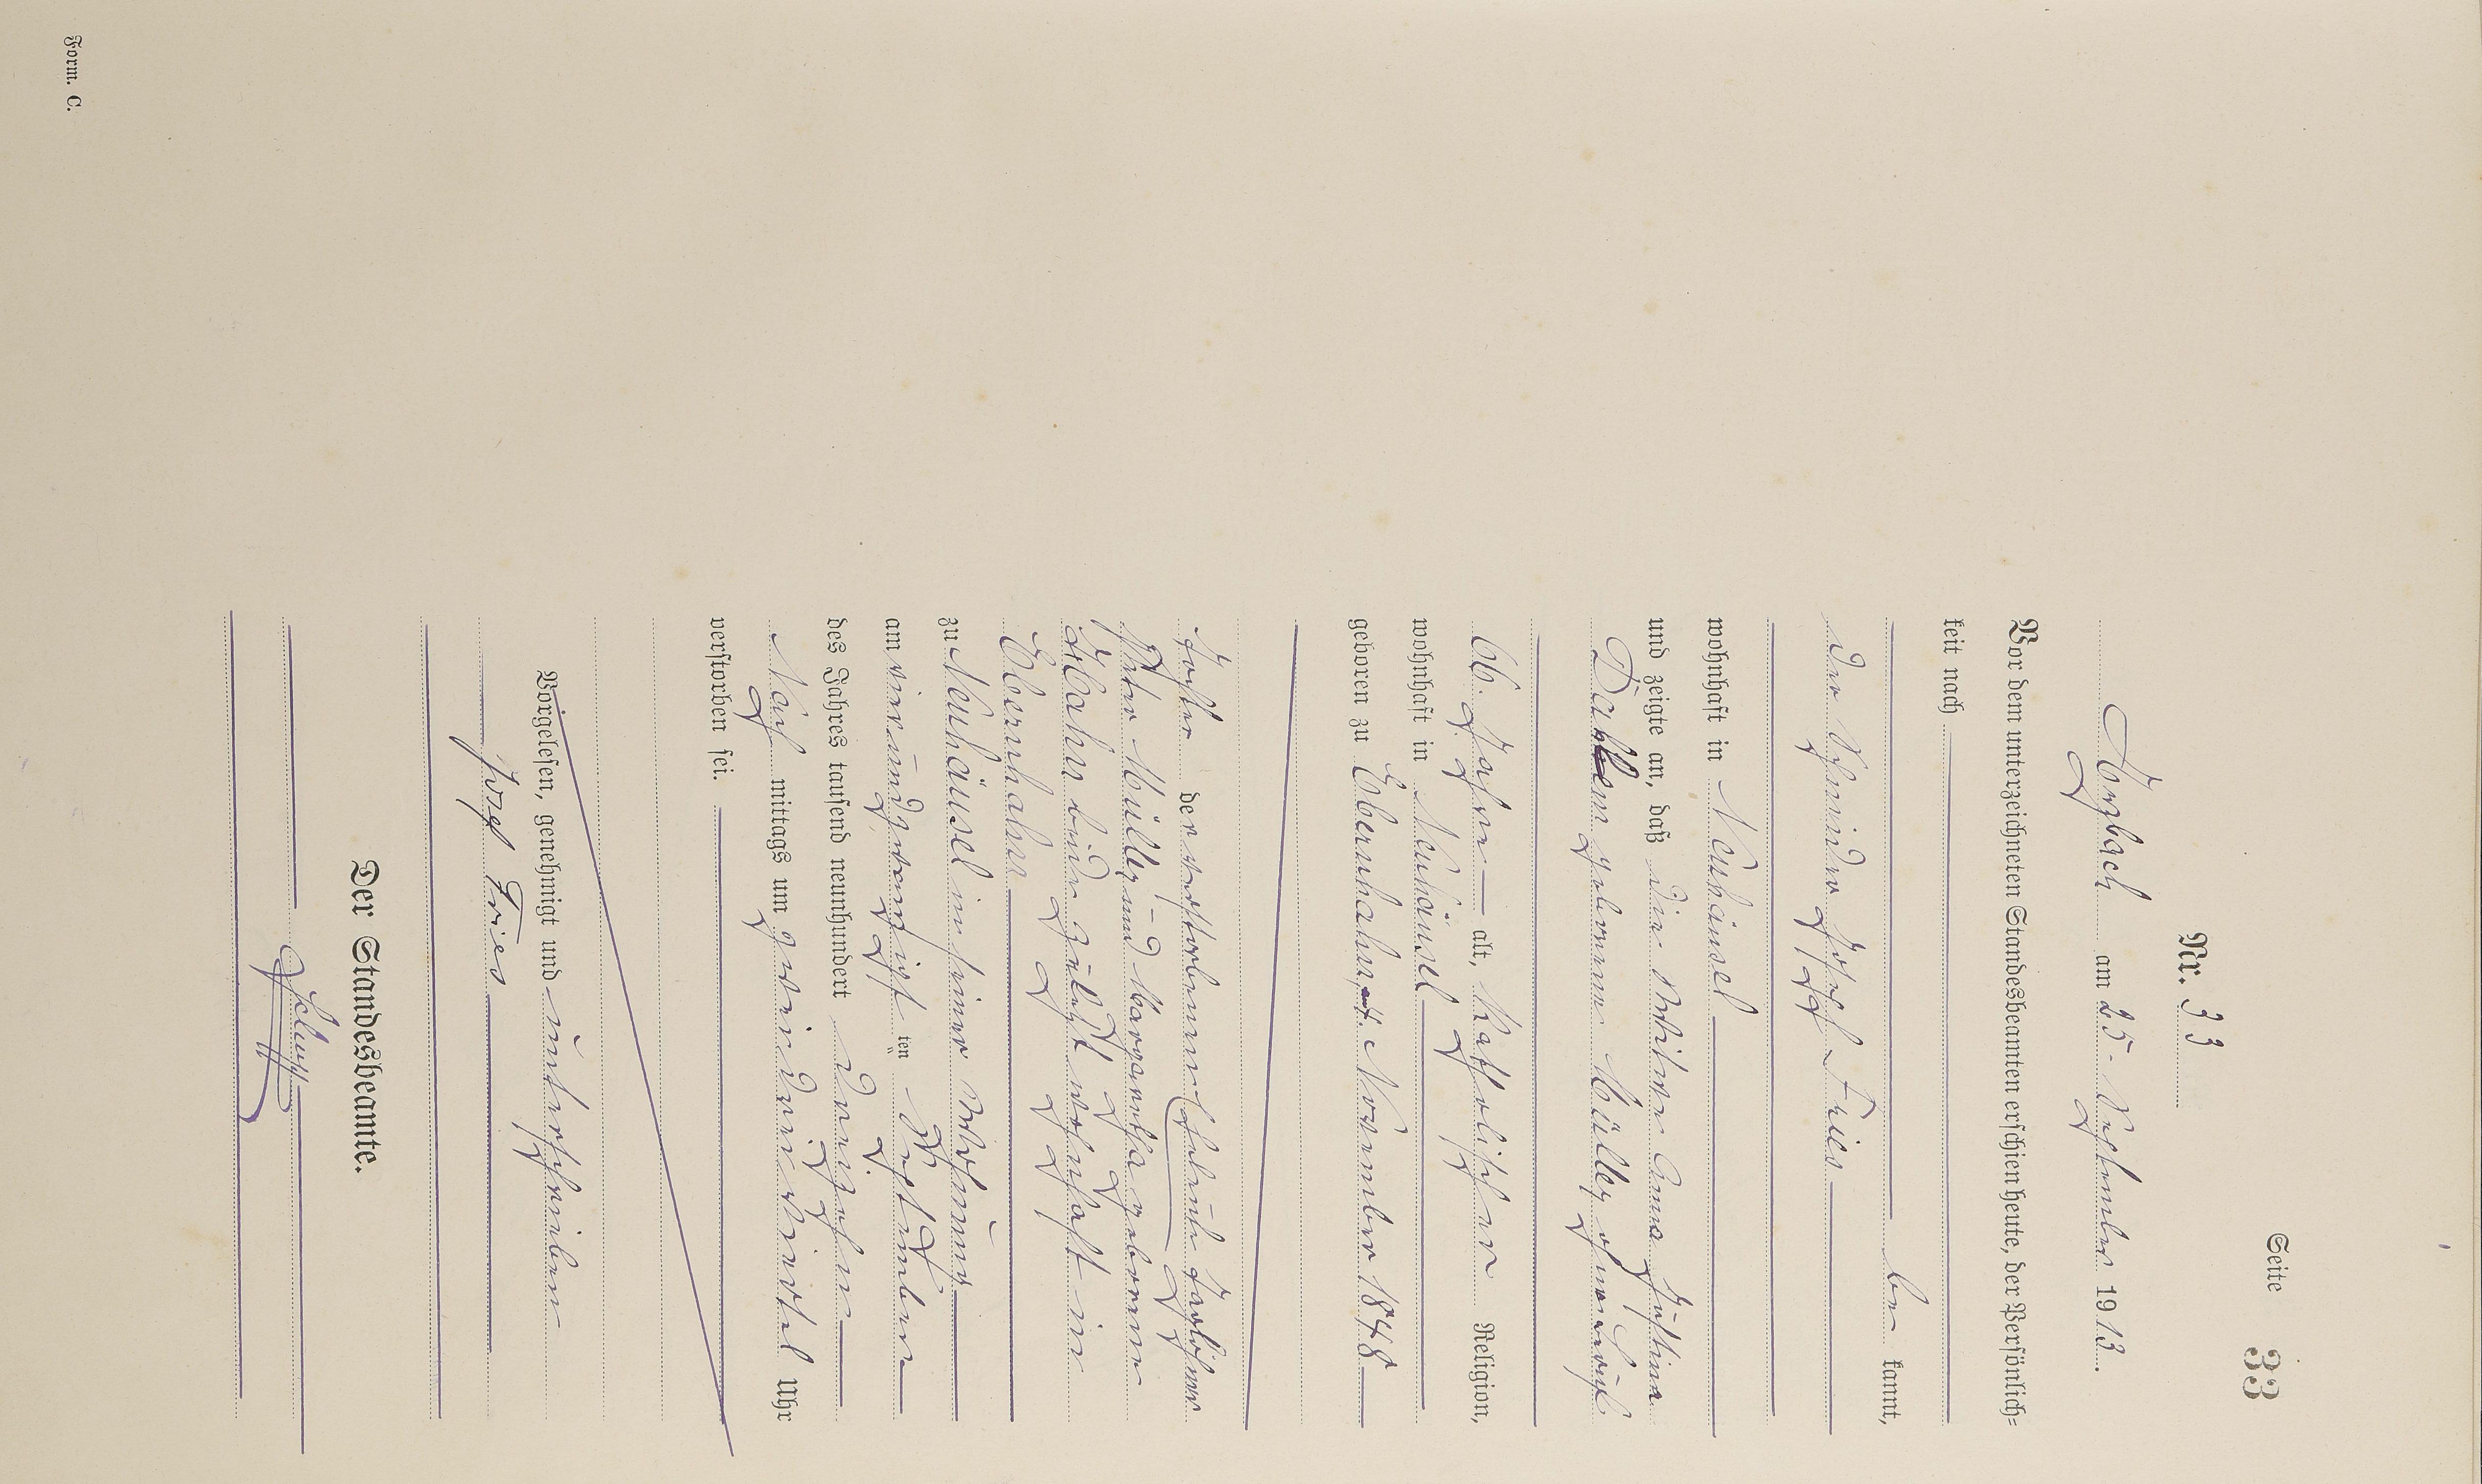 Seite 33
Nr. 33
Arzbach am 25. September 1913.
Vor dem unterzeichneten Standesbeamten erschien heute, der Persönlich-
keit nach
be kannt,
der Schneider Josef Fries
wohnhaft in Neuhäusel
und zeigte an, daß die Witwe Anna Justina
geborene Müller, ohne Beruf
66 Jahre alt, katholischer Religion,
wohnhaft in Neuhäusel
geboren zu Ebernhahn, 4. November 1848
Tochter der verstorbenen Eheleute Tagelöhner
Peter Müller, und Margaretha geborene
Hahn beide zuletzt wohnhaft in
Ebernhahn
zu Neuhäusel in seiner Wohnung
am vierundzwanzigsten September
des Jahres tausend neunhundert dreizehn
Nach mittags um zweidreiviertel Uhr
verstorben sei.
Vorgelesen, genehmigt und unterschrieben
Josef Fries
Der Standesbeamte.
Form. C.